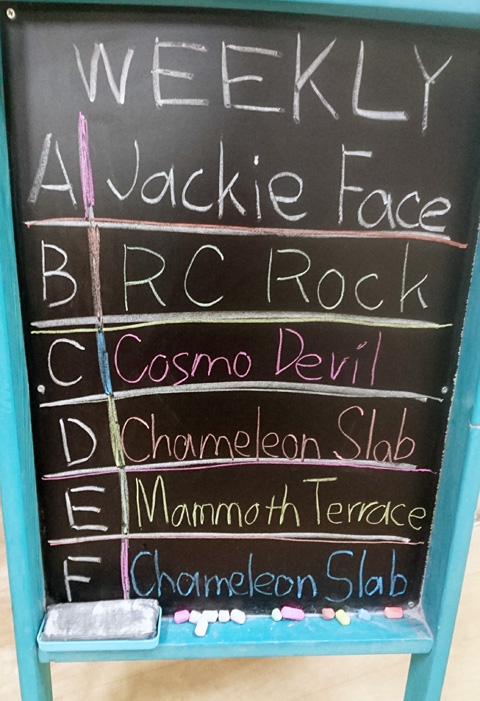 WEEKLY
A Jackie Face
B RC Rock
C Cosmo Devil
D Chameleon Slab
E Mammoth Terrace
F Chameleon Slab